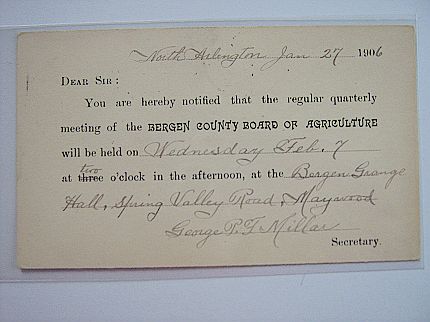 North Arlington Jan 27 1906
DEAR SIR:
You are hereby notified that the regular quarterly
meeting of the BERGEN COUNTY BOARD OF AGRICULTURE
will be held on Wednesday Feb. 7
two
at three o'clock in the afternoon, at the Bergen Grange
Hall, Spring Valley Road, Maywood
George P. F. Millar
Secretary.